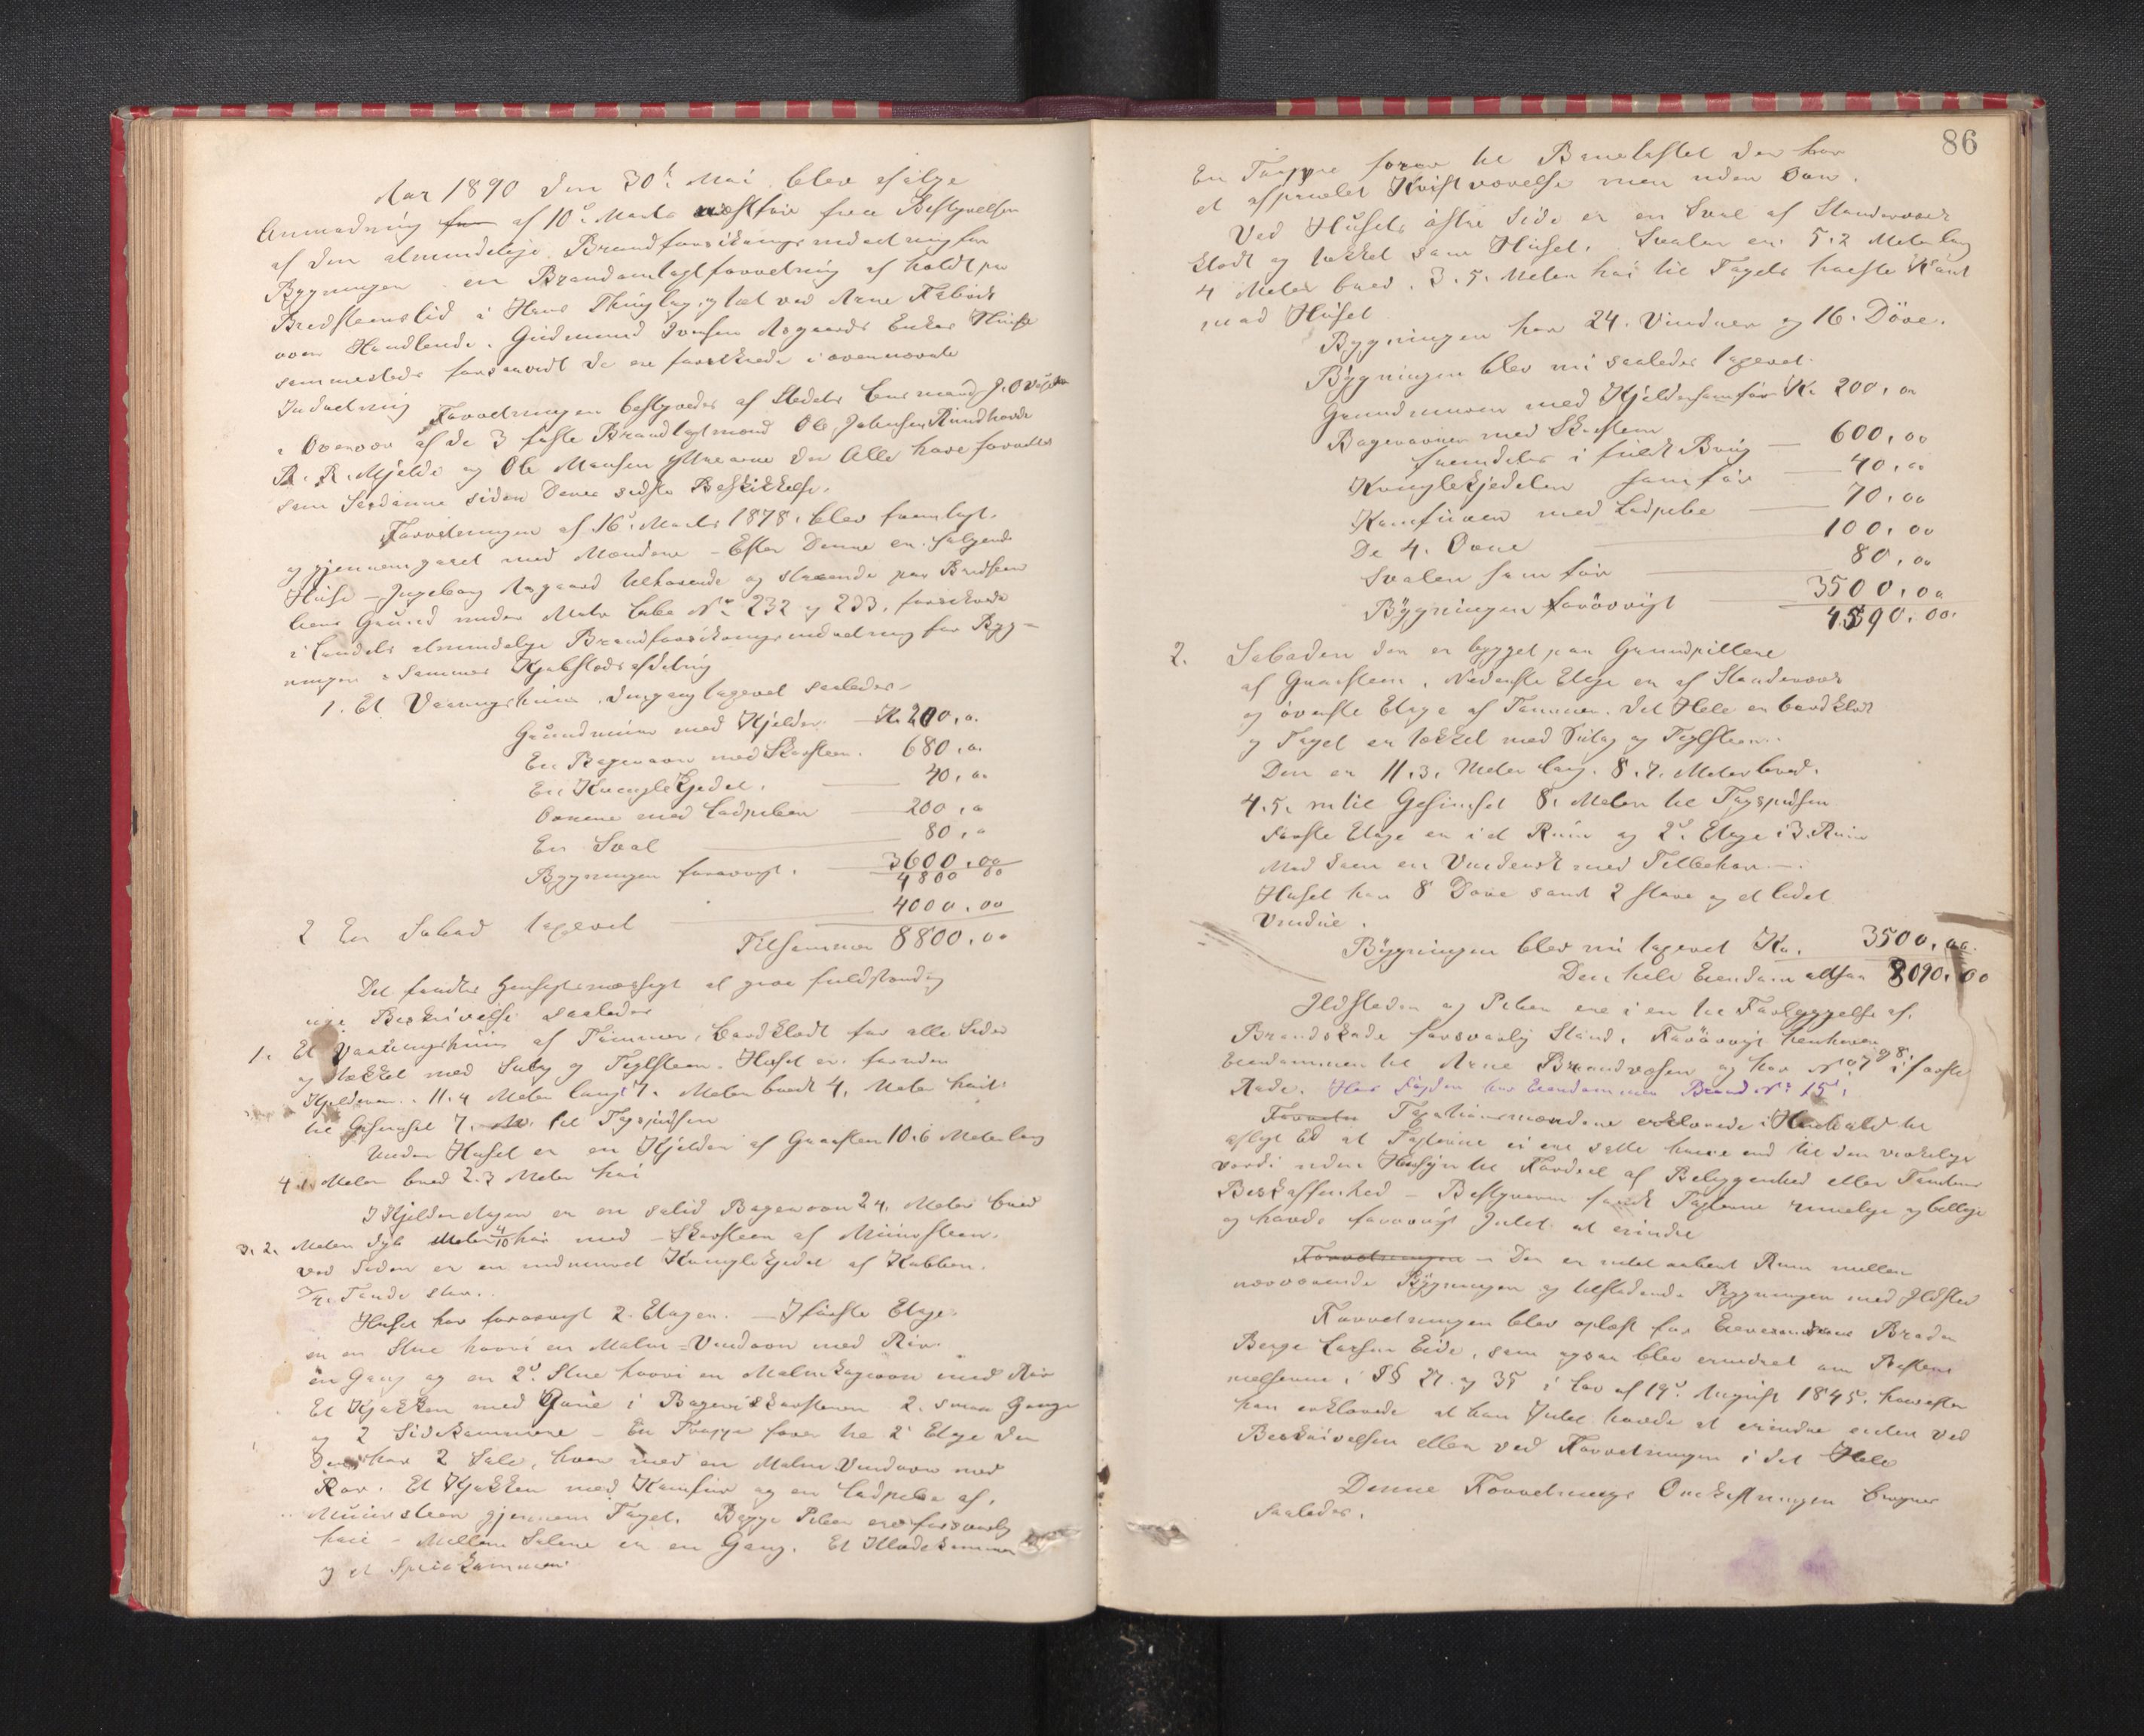 Aar 1890 den 30t Mai blev ifølge
Anmodning af 10de Marts næstfør fra Bestyrelsen
af den almindelige Brandforsikringsindretning for
Bygninger en Brandomtaxtforretning afholdt paa
i Haus Thinglag, ved Arne
over Handlende Gudmund Iversen Aagaards Enkes Huse
sammesteds forsaavidt de ere forsikrede i ovennævnte
Indretning
Forretningen bestyredes af Stedets Lensmand
i Overvær af de 3 faste Brandtaxtmænd Ole Johnsen Rundhovde
R. R. Mjelde og Ole Monsen der Alle have forrettet
som Saadanne siden Deres sidste Beskikkelse.
Forretningen af 16de Marts 1878 blev fremlagt
og gjennemgaaet med Mændene – Efter Denne er følgende
Huse – Ingeborg Aagaard tilhørende og staaende paa
Grund under Matr Løbe No 232 og 233, forsikrede
i Landets almindelige Brandforsikringsindretning for Byg-
ninger
1. Et Vaaningshuus, dengang taxeret saaledes
Grundmuur med Kjelder Kr 200,00
En Bagerovn med Skorsten. 680,00
En Kringlekjedel. 40,00
Ovnene med Ladpiben 200,00
En Sval 80,00
Bygningen forøvrigt. 3600,00
4800 00
2 En Søbod taxeret 4000,00
Tilsammen 8800,00
Det fandtes hensigtsmæssigt at give fuldstændig
nye Beskrivelse saaledes
1. Et Vaaningshuus af Tømmer, bordklædt for alle Sider
og tækket med Sutag og Teglsteen. Huset er foruden
Kjelderen 11.4 Meter langt 7. Meter bredt 4, Meter høit
til Gesimset 7, M. til Tagspidsen
Under Huset er en Kjelder af Graasteen 10.6 Meter lang
4.1 Meter bred 2.3 Meter høi
I Kjelder Etagen er en solid Bagerovn 2.4. Meter bred
3.2. Meter dyb Meter 4/10 høi med Skorsteen af Muursteen.
ved Siden er en indmuret Kringlekjedel af Kobber.
Tønde stor.
Huset har forøvrigt 2. Etager. – I første Etage
er en Stue hvori en Malm-Vindovn med Rør.
en Gang og en 2d Stue hvori en Malmkagovn med Rør
Et Kjøkken med Gruue i Bageriskorstenen 2. smaa Gange
og 2 Sidekammere – En Trappe fører til 2d Etage der
har 2 Sale, hver med en Malm Vindovn med
Rør. Et Kjøkken med Komfur og en Ladpibe af
Muursteen gjennem Taget. Begge Piber ere forsvarlig
høie – Mellem Salene er en Gang. Et Klædekammer
og et Spiskammer
86
En Trappe fører til Brueloftet der har
et afpanelet Kvistværelse men uden Ovn.
Ved Husets østre Side er en Sval af Standerværk
klædt og tækket som Huset. Svalen er 5.2 Meter lang
4 Meter bred. 3.5. Meter høi til Tagets høieste Kant
mod Huset
Bygningen har 24. Vinduer og 16. Døre.
Bygningen blev nu saaledes taxeret
Grundmuren med Kjelder Kr 200,00
Bagerovnen med Skorsten
fremdeles i fuldt Brug — 600,00
Kringlekjedelen — 40,00
Komfuren med Ladpibe — 70,00
De 4. Ovne — 100,00
Svalen — 80,00
Bygningen forøvrigt — 3500,00
4590,00
2. Søboden den er bygget paa Grundpillere
af Graasteen. Nederste Etage er af Standerværk
og øverste Etage af Tømmer. Det Hele er bordklædt
og Taget er tækket med Sutag og Teglsteen.
Den er 11.3. Meter lang. 8.7. Meter bred.
4.5. m til Gesimset 8. Meter til Tagspidsen
Første Etage er i et Rum og 2d Etage i 3. Rum
med Tilbehør
Huset har 8 Døre samt 2 store og et lidet
Vindue.
Bygningen blev nu taxeret Kr. 3500,00
Den hele Eiendom altsaa 8090,00
Ildsteder og Piber ere i en til Forbyggelse af
Brandskade forsvarlig Stand. Forøvrigt henhører
Eiendommen til Arne Brandvæsen og har No
Rode. har Eiendommen Brand No 15.
Taxationsmændene erklærede i Henhold til
aflagt Ed at Taxterne ei ere satte høiere end til den virkelige
Værdi uden Hensyn til Fordeel af Beliggenhed eller Tomtens
Beskaffenhed – Bestyreren fandt Taxterne rimelige og billige
og havde forøvrigt Intet at erindre
Forretningen – Der er intet aabent Rum mellem
nærværende Bygninger og tilstødende Bygninger med Ildsted
Forretningen blev oplæst for Eierens Broder
Berge Larsen Eide, som ogsaa blev erindret om Bestem
melserne i §§ 27 og 35 i Lov af 19d August 1845, hvorefter
han erklærede at han Intet havde at erindre enten ved
Beskrivelsen eller ved Forretningen i det Hele
Denne Forretnings Omkostninger
saaledes.